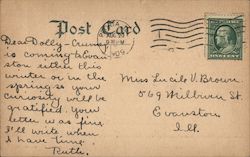 Post Card
Dear Dolly - Crume
is coming to Evan-
ston either this
winter or in the
spring so your
curiosity will be
gratified. Your
letter was fine.
I'll write when
I have time.
Ruth.
Miss Lucile V. Brown
569 Milburn St.
Evanston
Ill.